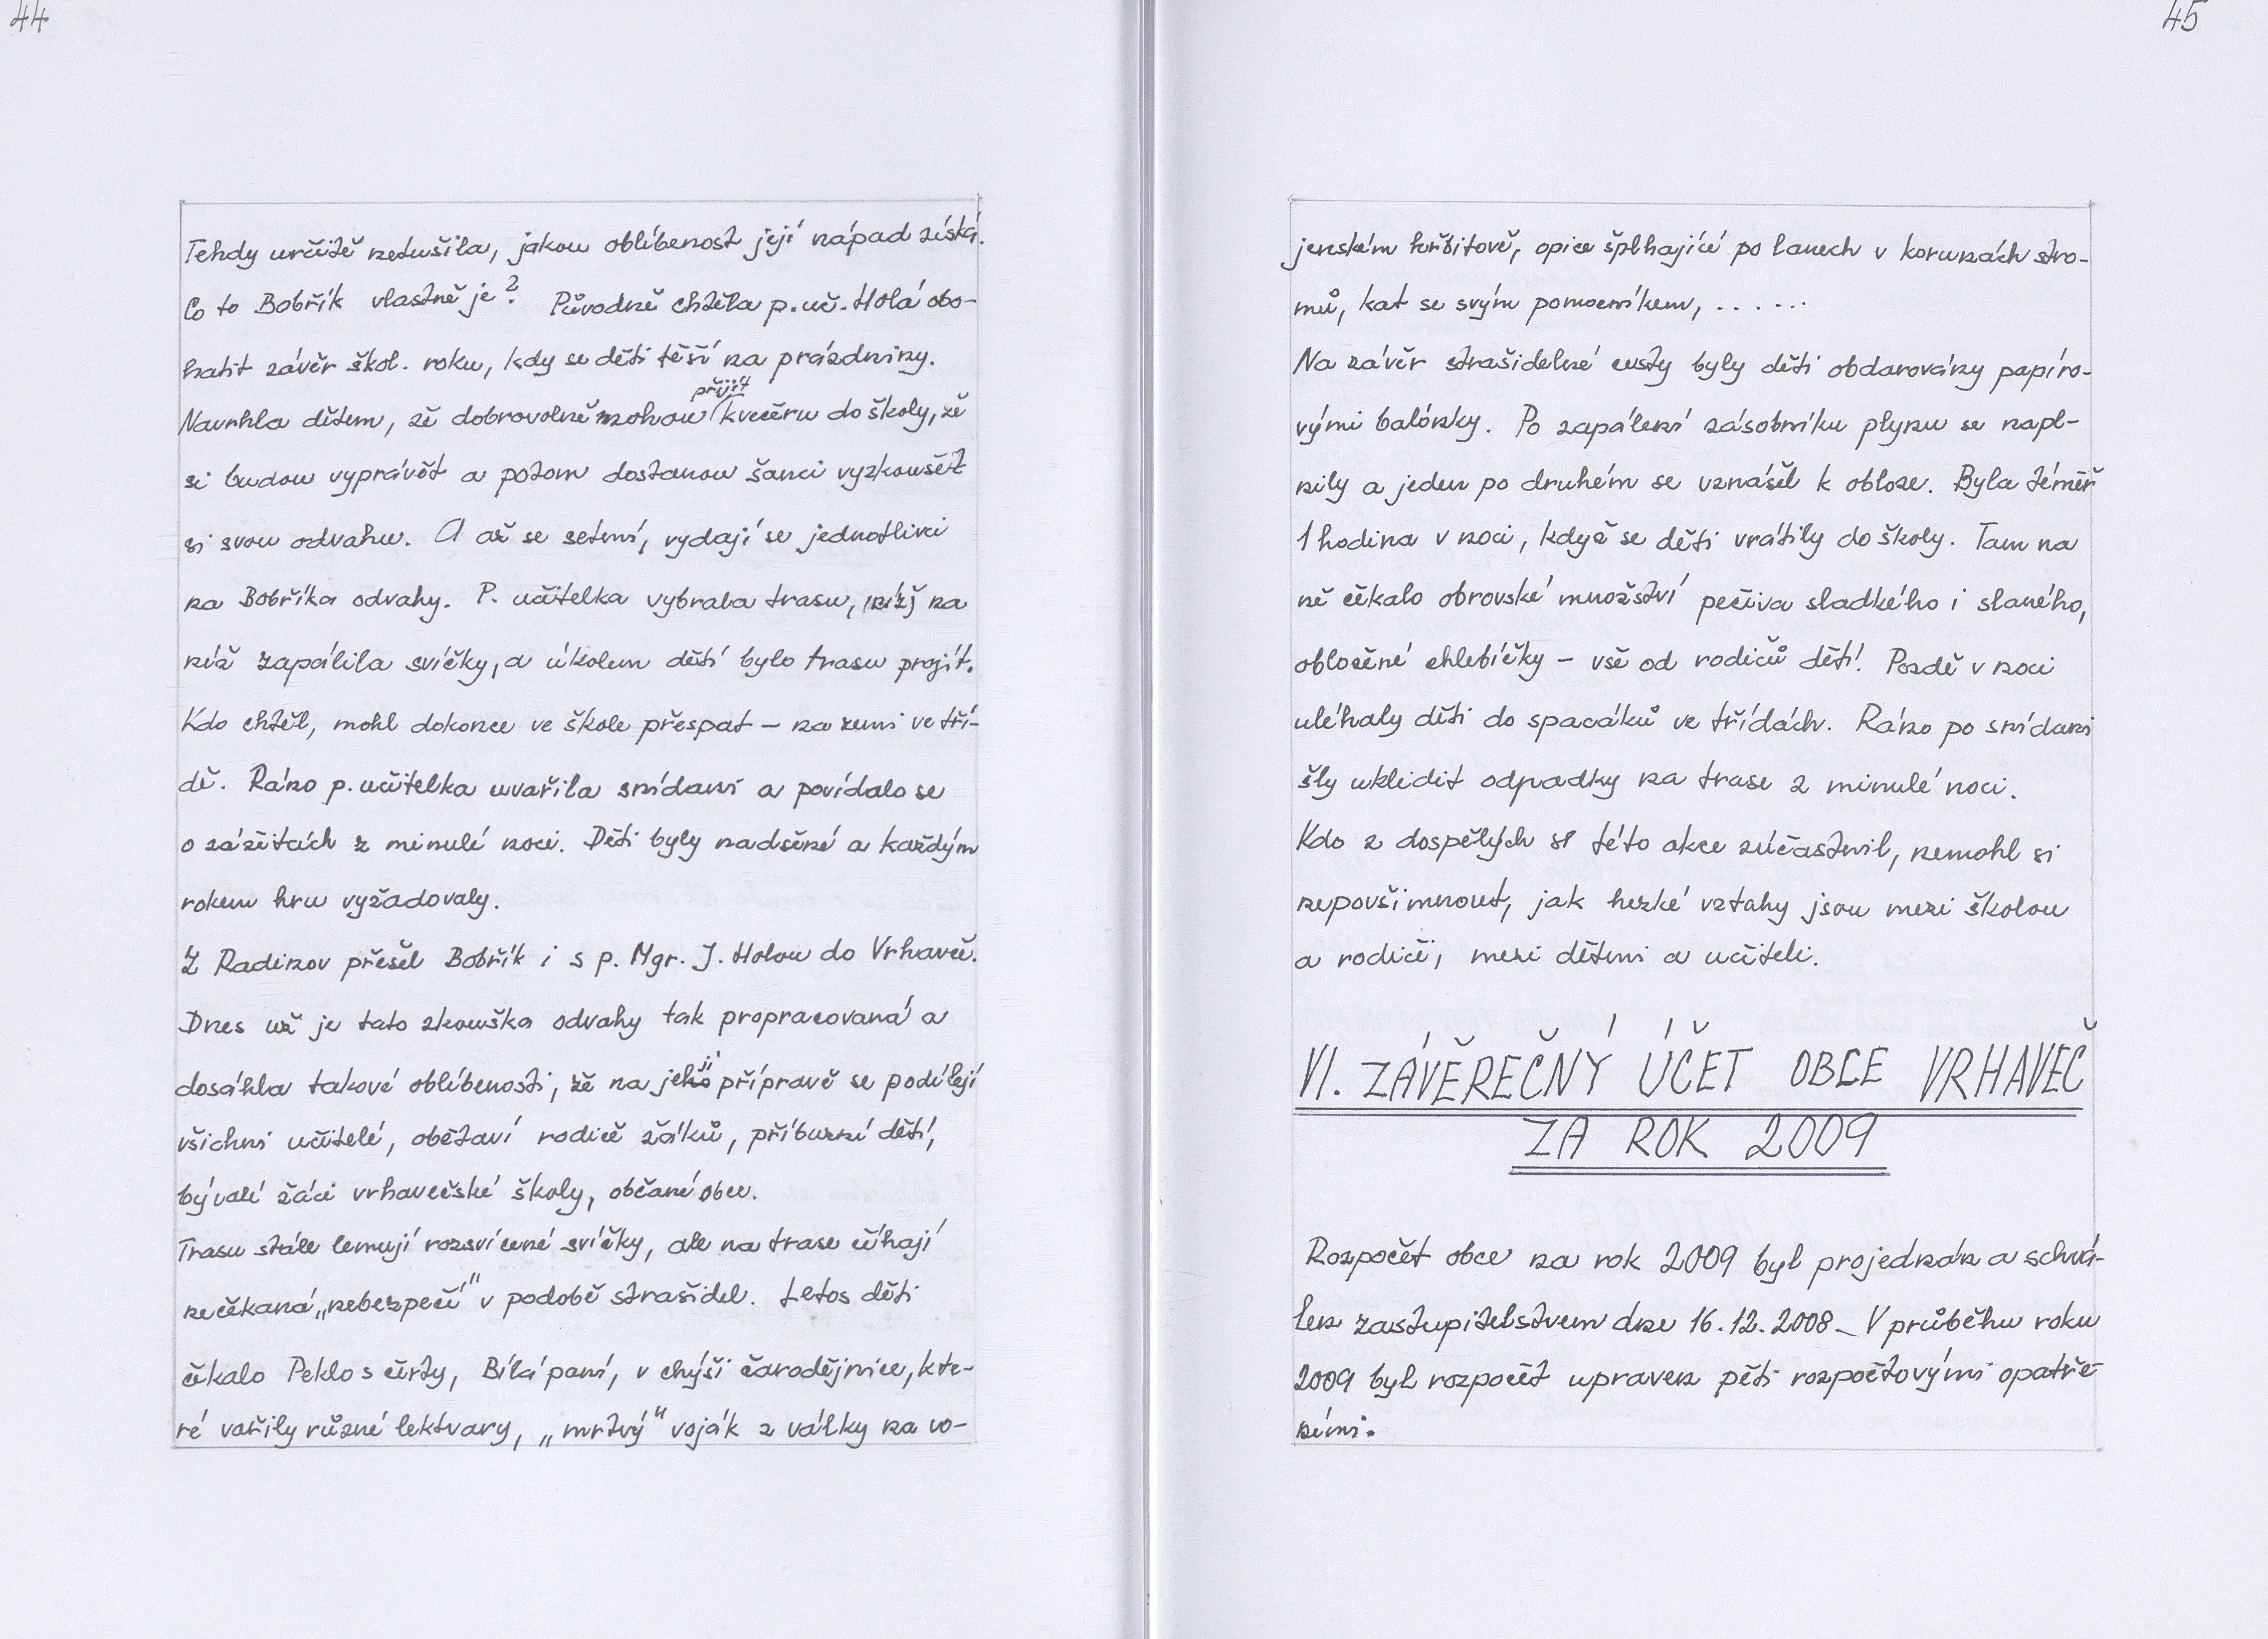 44
Tehdy určitě netušila, jakou oblíbenost její nápad získá.
Co to Bobřík vlastně je? Původně chtěla p. uč. Holá obo-
hatit závěr škol. roku, kdy se děti těší na prázdniny.
přijít
Navrhla dětem, že dobrovolně mohou kvečeru do školy, že
si budou vyprávět a potom dostanou šanci vyzkoušet
si svou odvahu. A až se setmí, vydají se jednotlivci
na Bobříka odvahy. P. učitelka vybrala trasu, na
níž zapálila svíčky, a úkolem dětí bylo trasu projít.
Kdo chtěl, mohl dokonce ve škole přespat – na zemi ve tří-
dě. Ráno p. učitelka uvařila snídani a povídalo se
o zážitcích z minulé noci. Děti byly nadšené a každým
rokem hru vyžadovaly.
Z Radinov přešel Bobřík i s p. Mgr. J. Holou do Vrhavče.
Dnes už je tato zkouška odvahy tak propracovaná a
dosáhla takové oblíbenosti, že na její přípravě se podílejí
všichni učitelé, obětaví rodiče žáků, příbuzní dětí,
bývalí žáci vrhavečské školy, občané obce.
Trasu stále lemují rozsvícené svíčky, ale na trase číhají
nečekaná „nebezpečí“ v podobě strašidel. Letos děti
čekalo Peklo s čerty, Bílá paní, v chýši čarodějnice, kte-
ré vařily různé lektvary, „mrtvý“ voják z války na vo-
45
jenském hřbitově, opice šplhající po lanech v korunách stro-
mů, kat se svým pomocníkem, ......
Na závěr strašidelné cesty byly děti obdarovány papíro-
vými balónky. Po zapálení zásobníku plynu se napl-
nily a jeden po druhém se vznášel k obloze. Byla téměř
1 hodina v noci, když se děti vrátily do školy. Tam na
ně čekalo obrovské množství pečiva sladkého i slaného,
obložené chlebíčky – vše od rodičů dětí. Pozdě v noci
uléhaly děti do spacáků ve třídách. Ráno po snídani
šly uklidit odpadky na trase z minulé noci.
Kdo z dospělých se této akce zúčastnil, nemohl si
nepovšimnout, jak hezké vztahy jsou mezi školou
a rodiči, mezi dětmi a učiteli.
VI. ZÁVĚREČNÝ ÚČET OBCE VRHAVEČ
ZA ROK 2009
Rozpočet obce na rok 2009 byl projednán a schvá-
len zastupitelstvem dne 16.12.2008. V průběhu roku
2009 byl rozpočet upraven pěti rozpočtovými opatře-
ními.